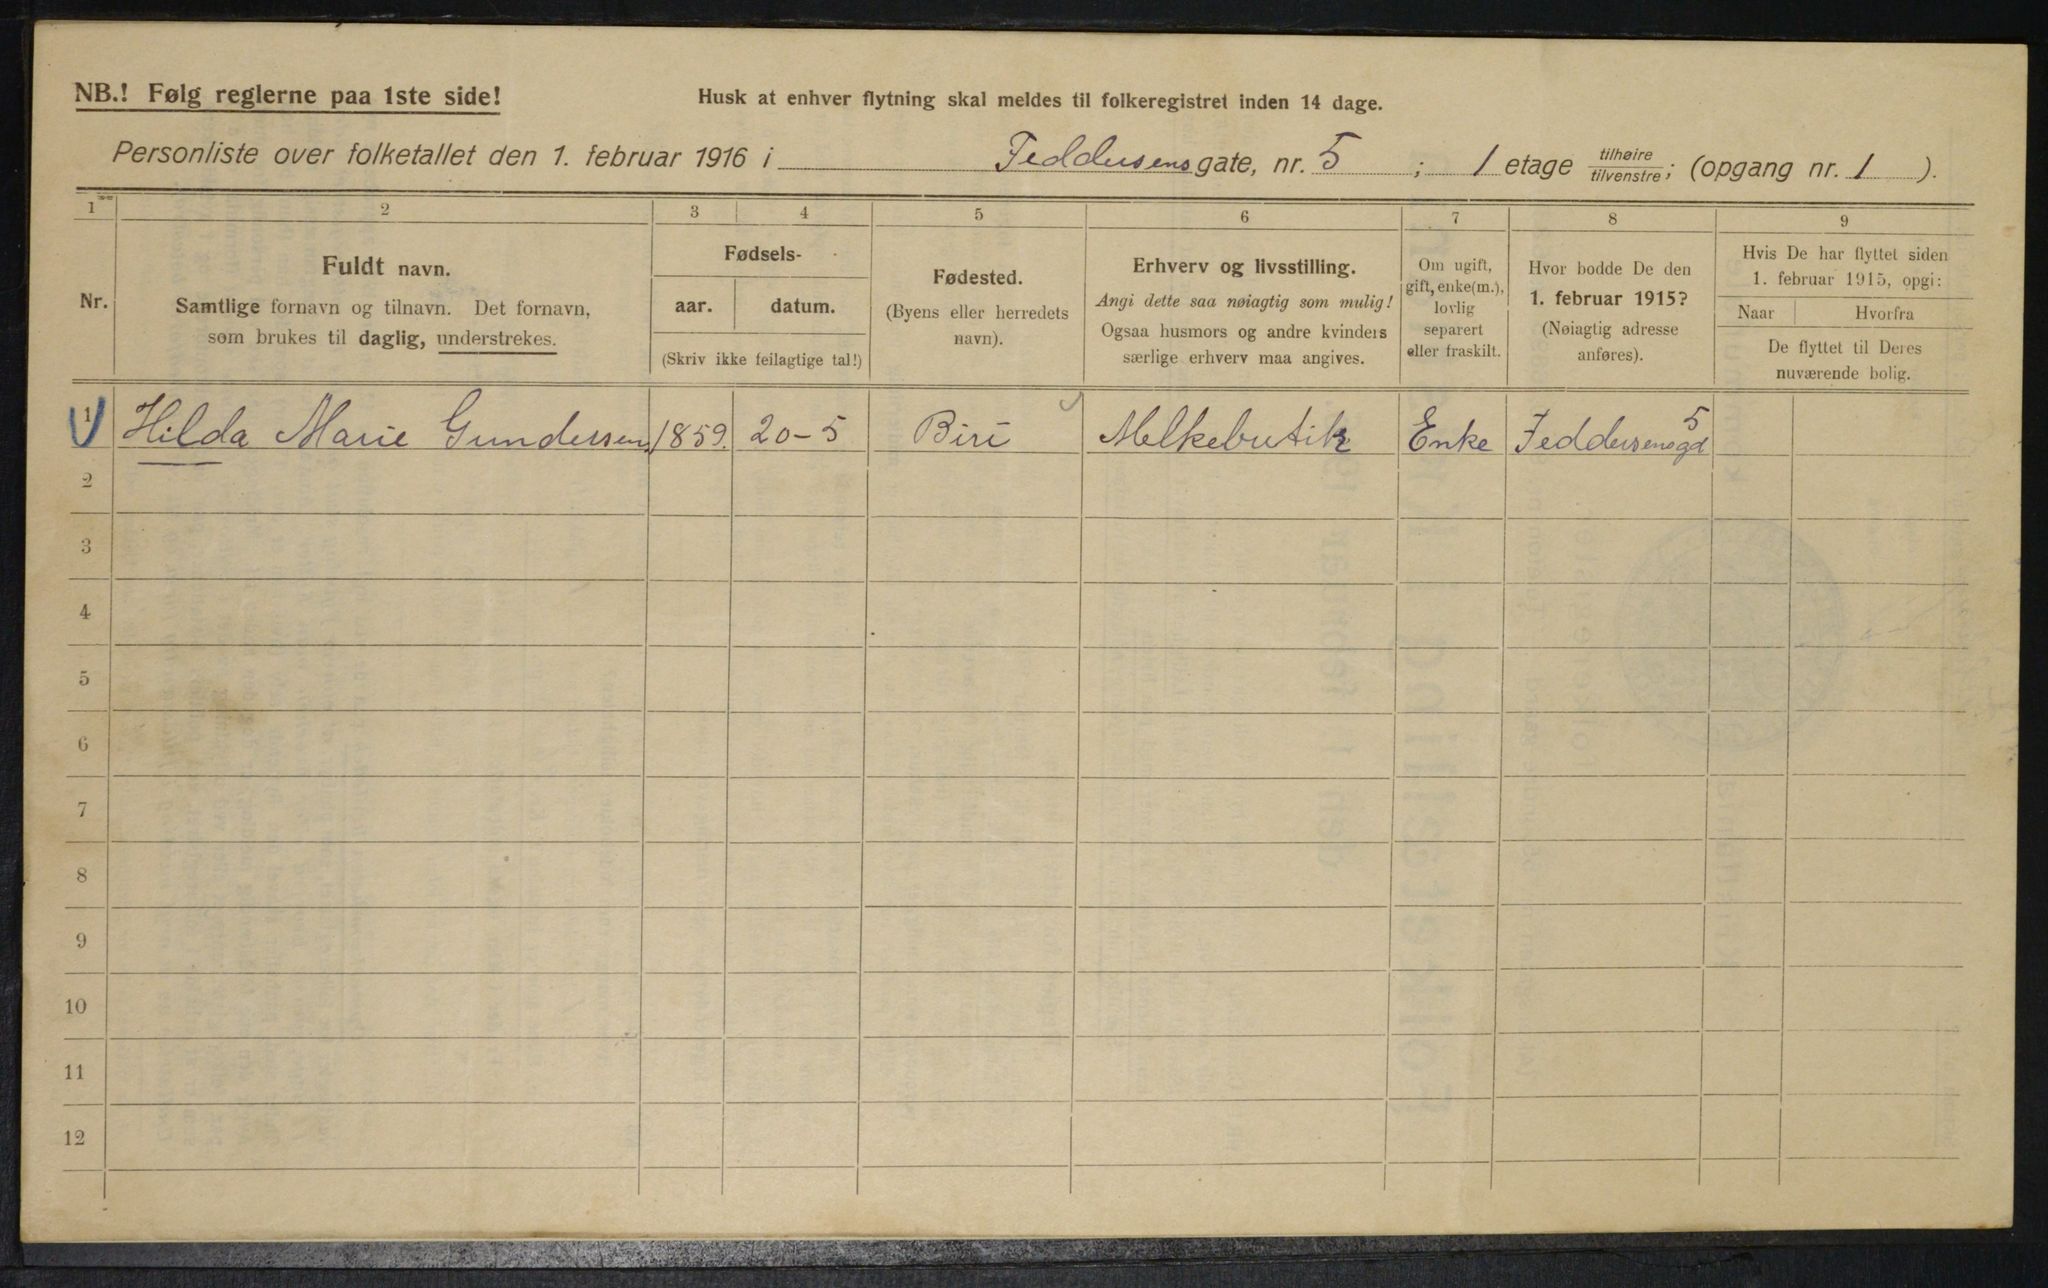 NB.! Følg reglerne paa 1ste side!
Husk at enhver flytning skal meldes til folkeregistret inden 14 dage.
Personliste over folketallet den 1. februar 1916 i Feddersens gate, nr. 5 ; 1 etage tilhøire/tilvenstre; (opgang nr. 1 ).
1 2 3 4 5 6 7 8 9
Nr.
Fuldt navn.
Samtlige fornavn og tilnavn. Det fornavn,
som brukes til daglig, understrekes.
Fødsels-
aar. datum.
(Skriv ikke feilagtige tal!)
Fødested.
(Byens eller herredets
navn).
Erhverv og livsstilling.
Angi dette saa nøiagtig som mulig!
Ogsaa husmors og andre kvinders
særlige erhverv maa angives.
Om ugift,
gift, enke(m.),
lovlig
separert
eller fraskilt.
Hvor bodde De den
1. februar 1915?
(Nøiagtig adresse
anføres).
Hvis De har flyttet siden
1. februar 1915, opgi:
Naar Hvorfra
De flyttet til Deres
nuværende bolig.
1 Hilda Marie Gundersen. 1859. 20-5 Biri Melkebutik Enke Feddersensgd 5
2
3
4
5
6
7
8
9
10
11
12